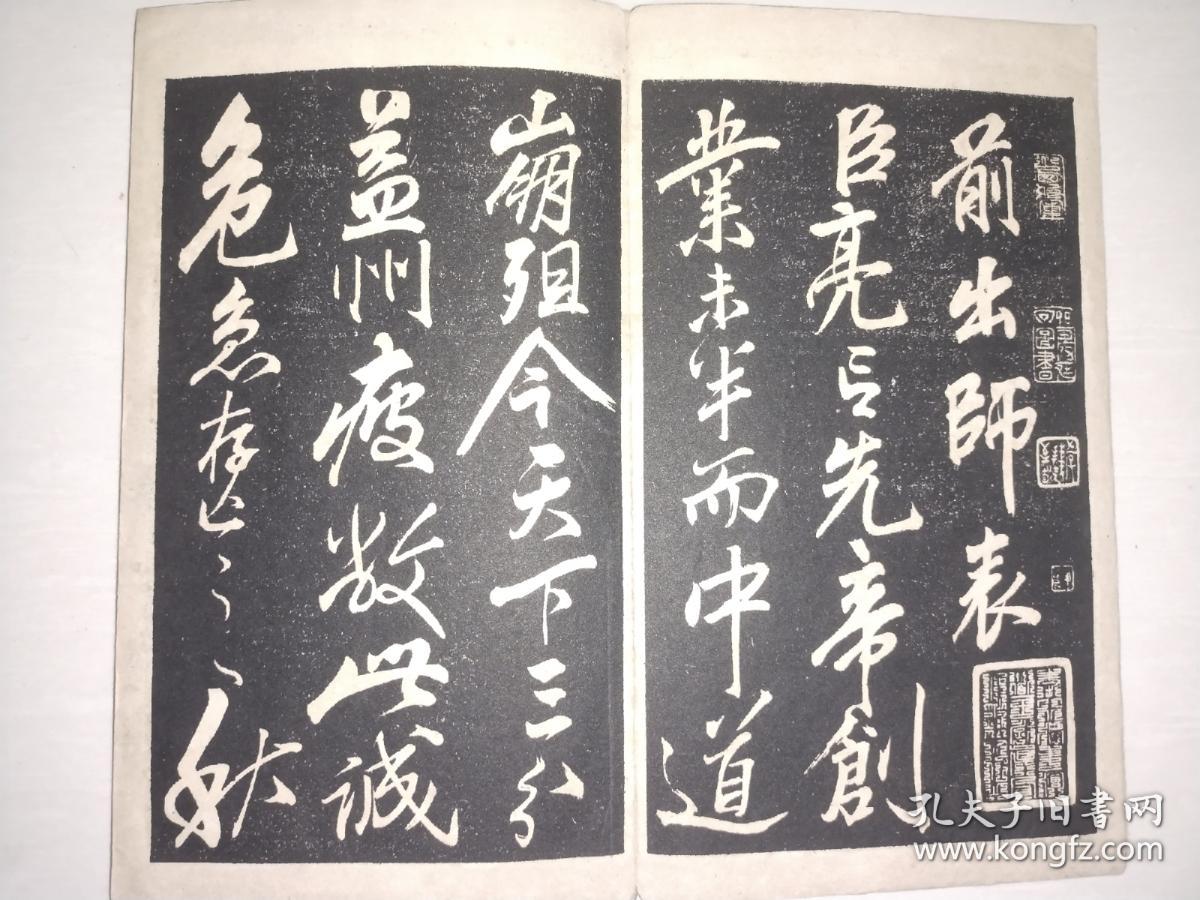 前出師表
臣亮言先帝創
業未半而中道
崩殂今天下三分
益州疲敝此誠
危急存亡之秋
孔夫子旧书网
www.kongfz.com